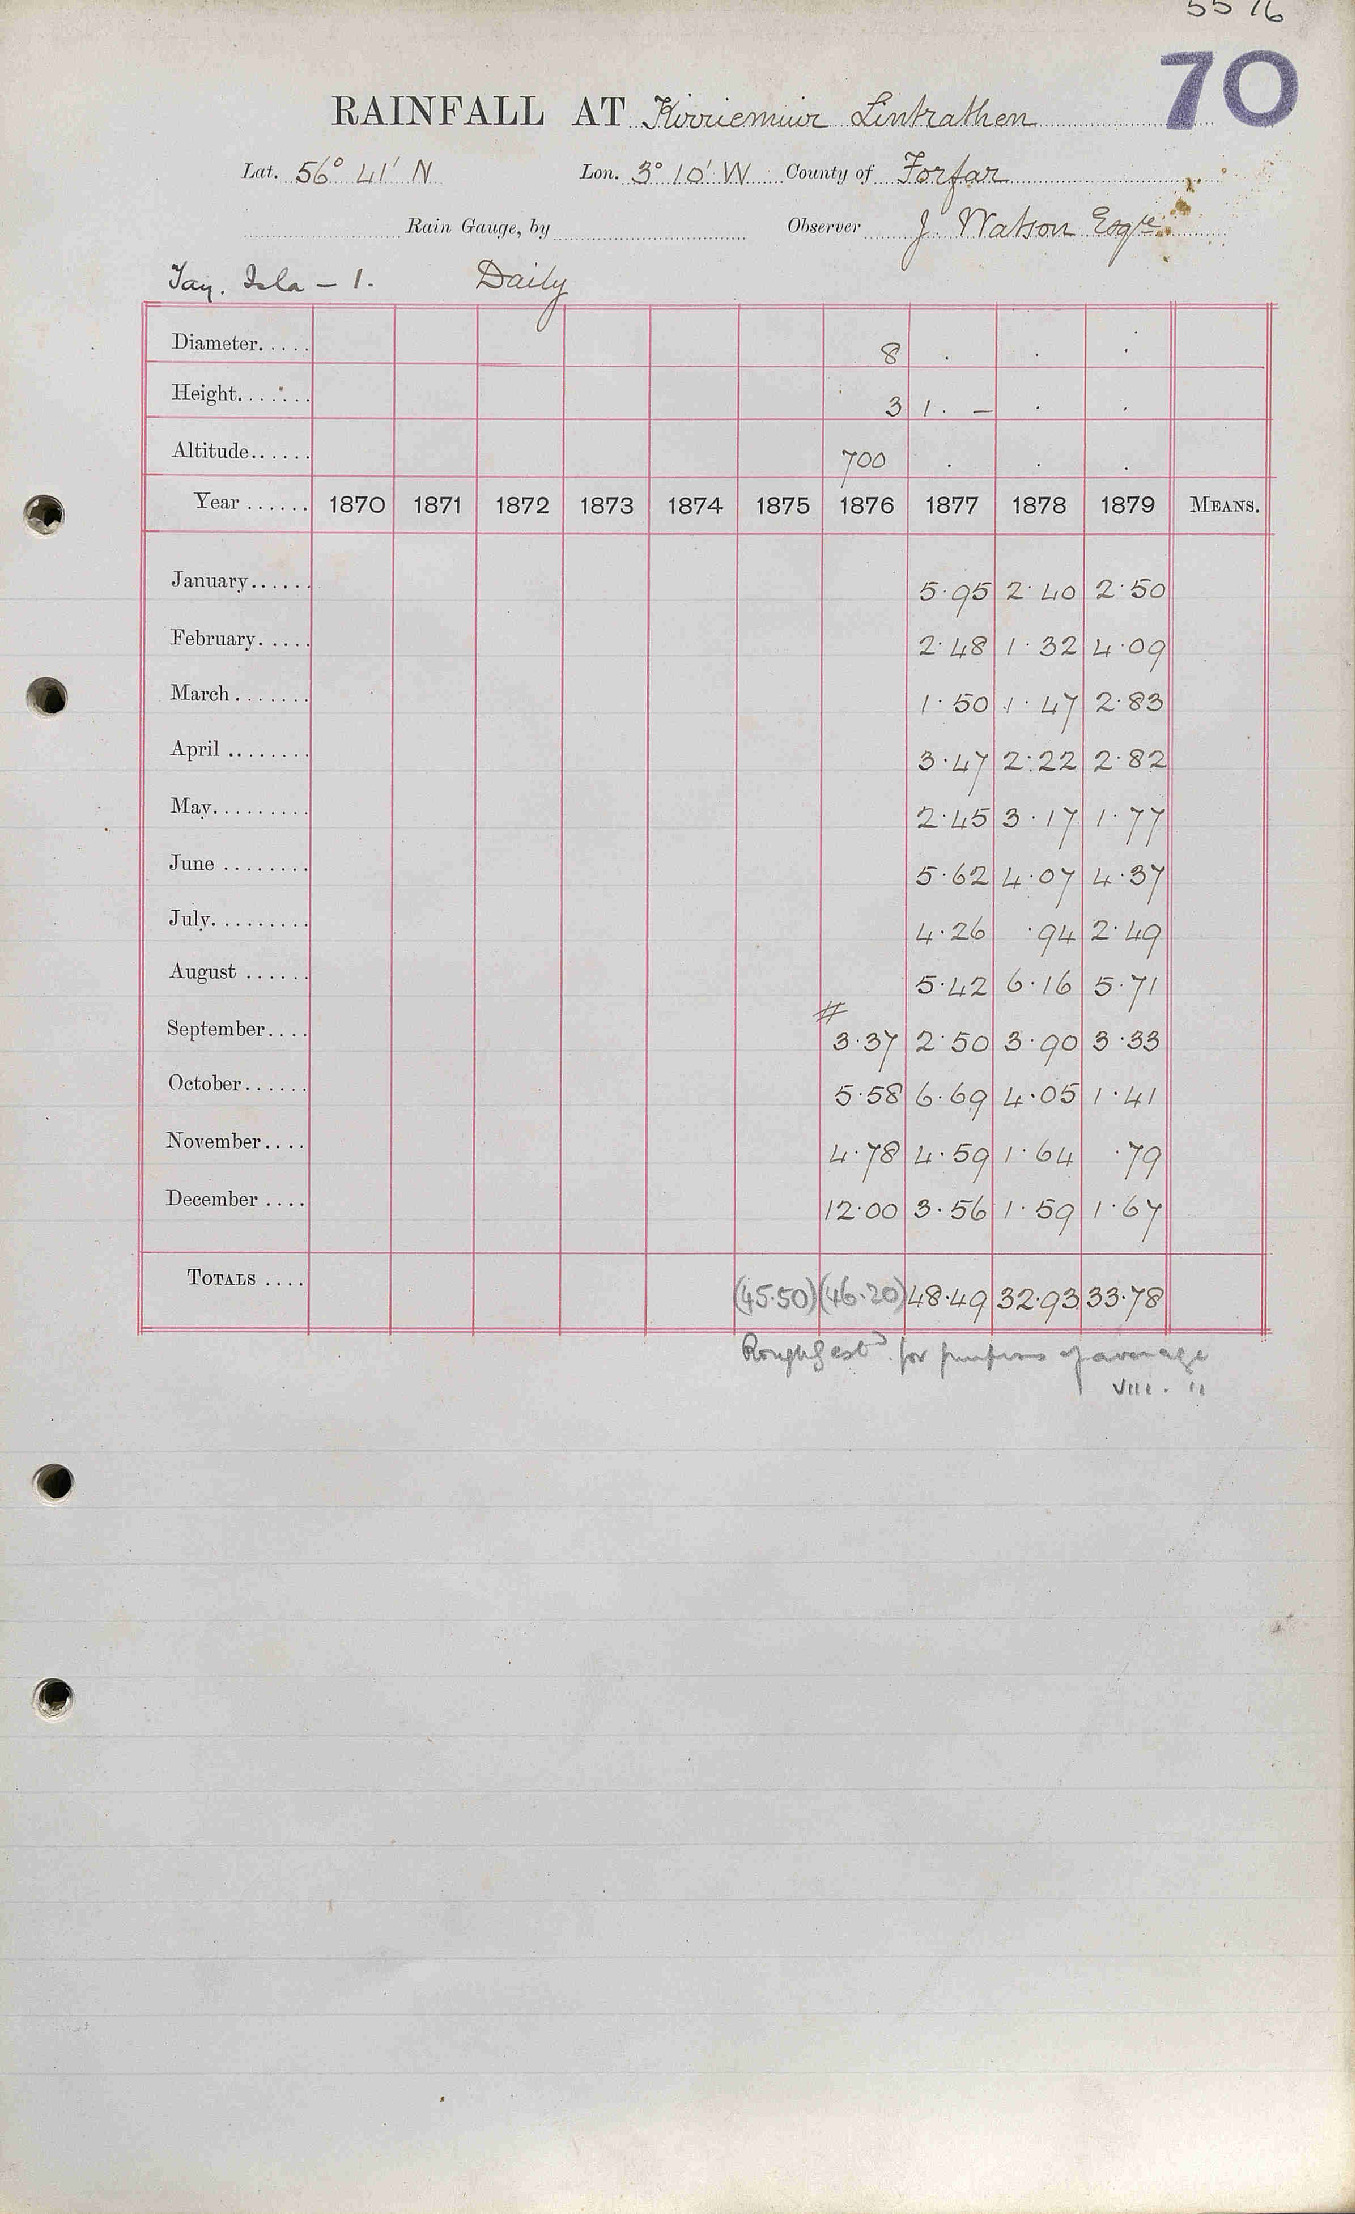 55 76
70
RAINFALL AT Kirriemuir Lintrathen
Lat. 56° 41' N Lon. 3° 10' W County of Forfar
Rain Gauge, by Observer J. Watson Esqre
Tay. Isla – 1. Daily
Diameter..... 8 . . .
Height....... 3 1. – . .
Altitude...... 700 . . .
Year ...... 1870 1871 1872 1873 1874 1875 1876 1877 1878 1879 MEANS.
January...... 5.95 2.40 2.50
February..... 2.48 1.32 4.09
March ....... 1.50 1.47 2.83
April ........ 3.47 2.22 2.82
May......... 2.45 3.17 1.77
June ........ 5.62 4.07 4.37
July......... 4.26 .94 2.49
August ...... 5.42 6.16 5.71
#
September.... 3.37 2.50 3.90 3.33
October...... 5.58 6.69 4.05 1.41
November.... 4.78 4.59 1.64 .79
December .... 12.00 3.56 1.59 1.67
TOTALS .... (45.50) (46.20) 48.49 32.93 33.78
Rough est'd. for purposes of average
VIII. 11